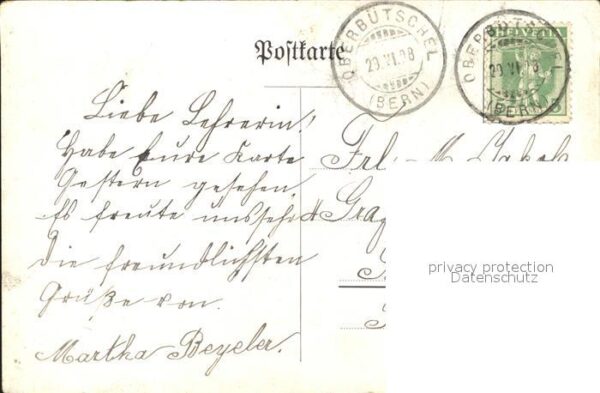 Postkarte
OBERBÜTSCHEL
29.VI.08
(BERN)
OBERBÜTS
29 VI 08
(BERN)
HELVETIA
Liebe Lehrerin!
Habe Eure Karte
Gestern gesehen.
Es freute uns sehr
Die freundlichsten
Grüße von.
Martha Beyeler.
Frl. M.
privacy protection
Datenschutz